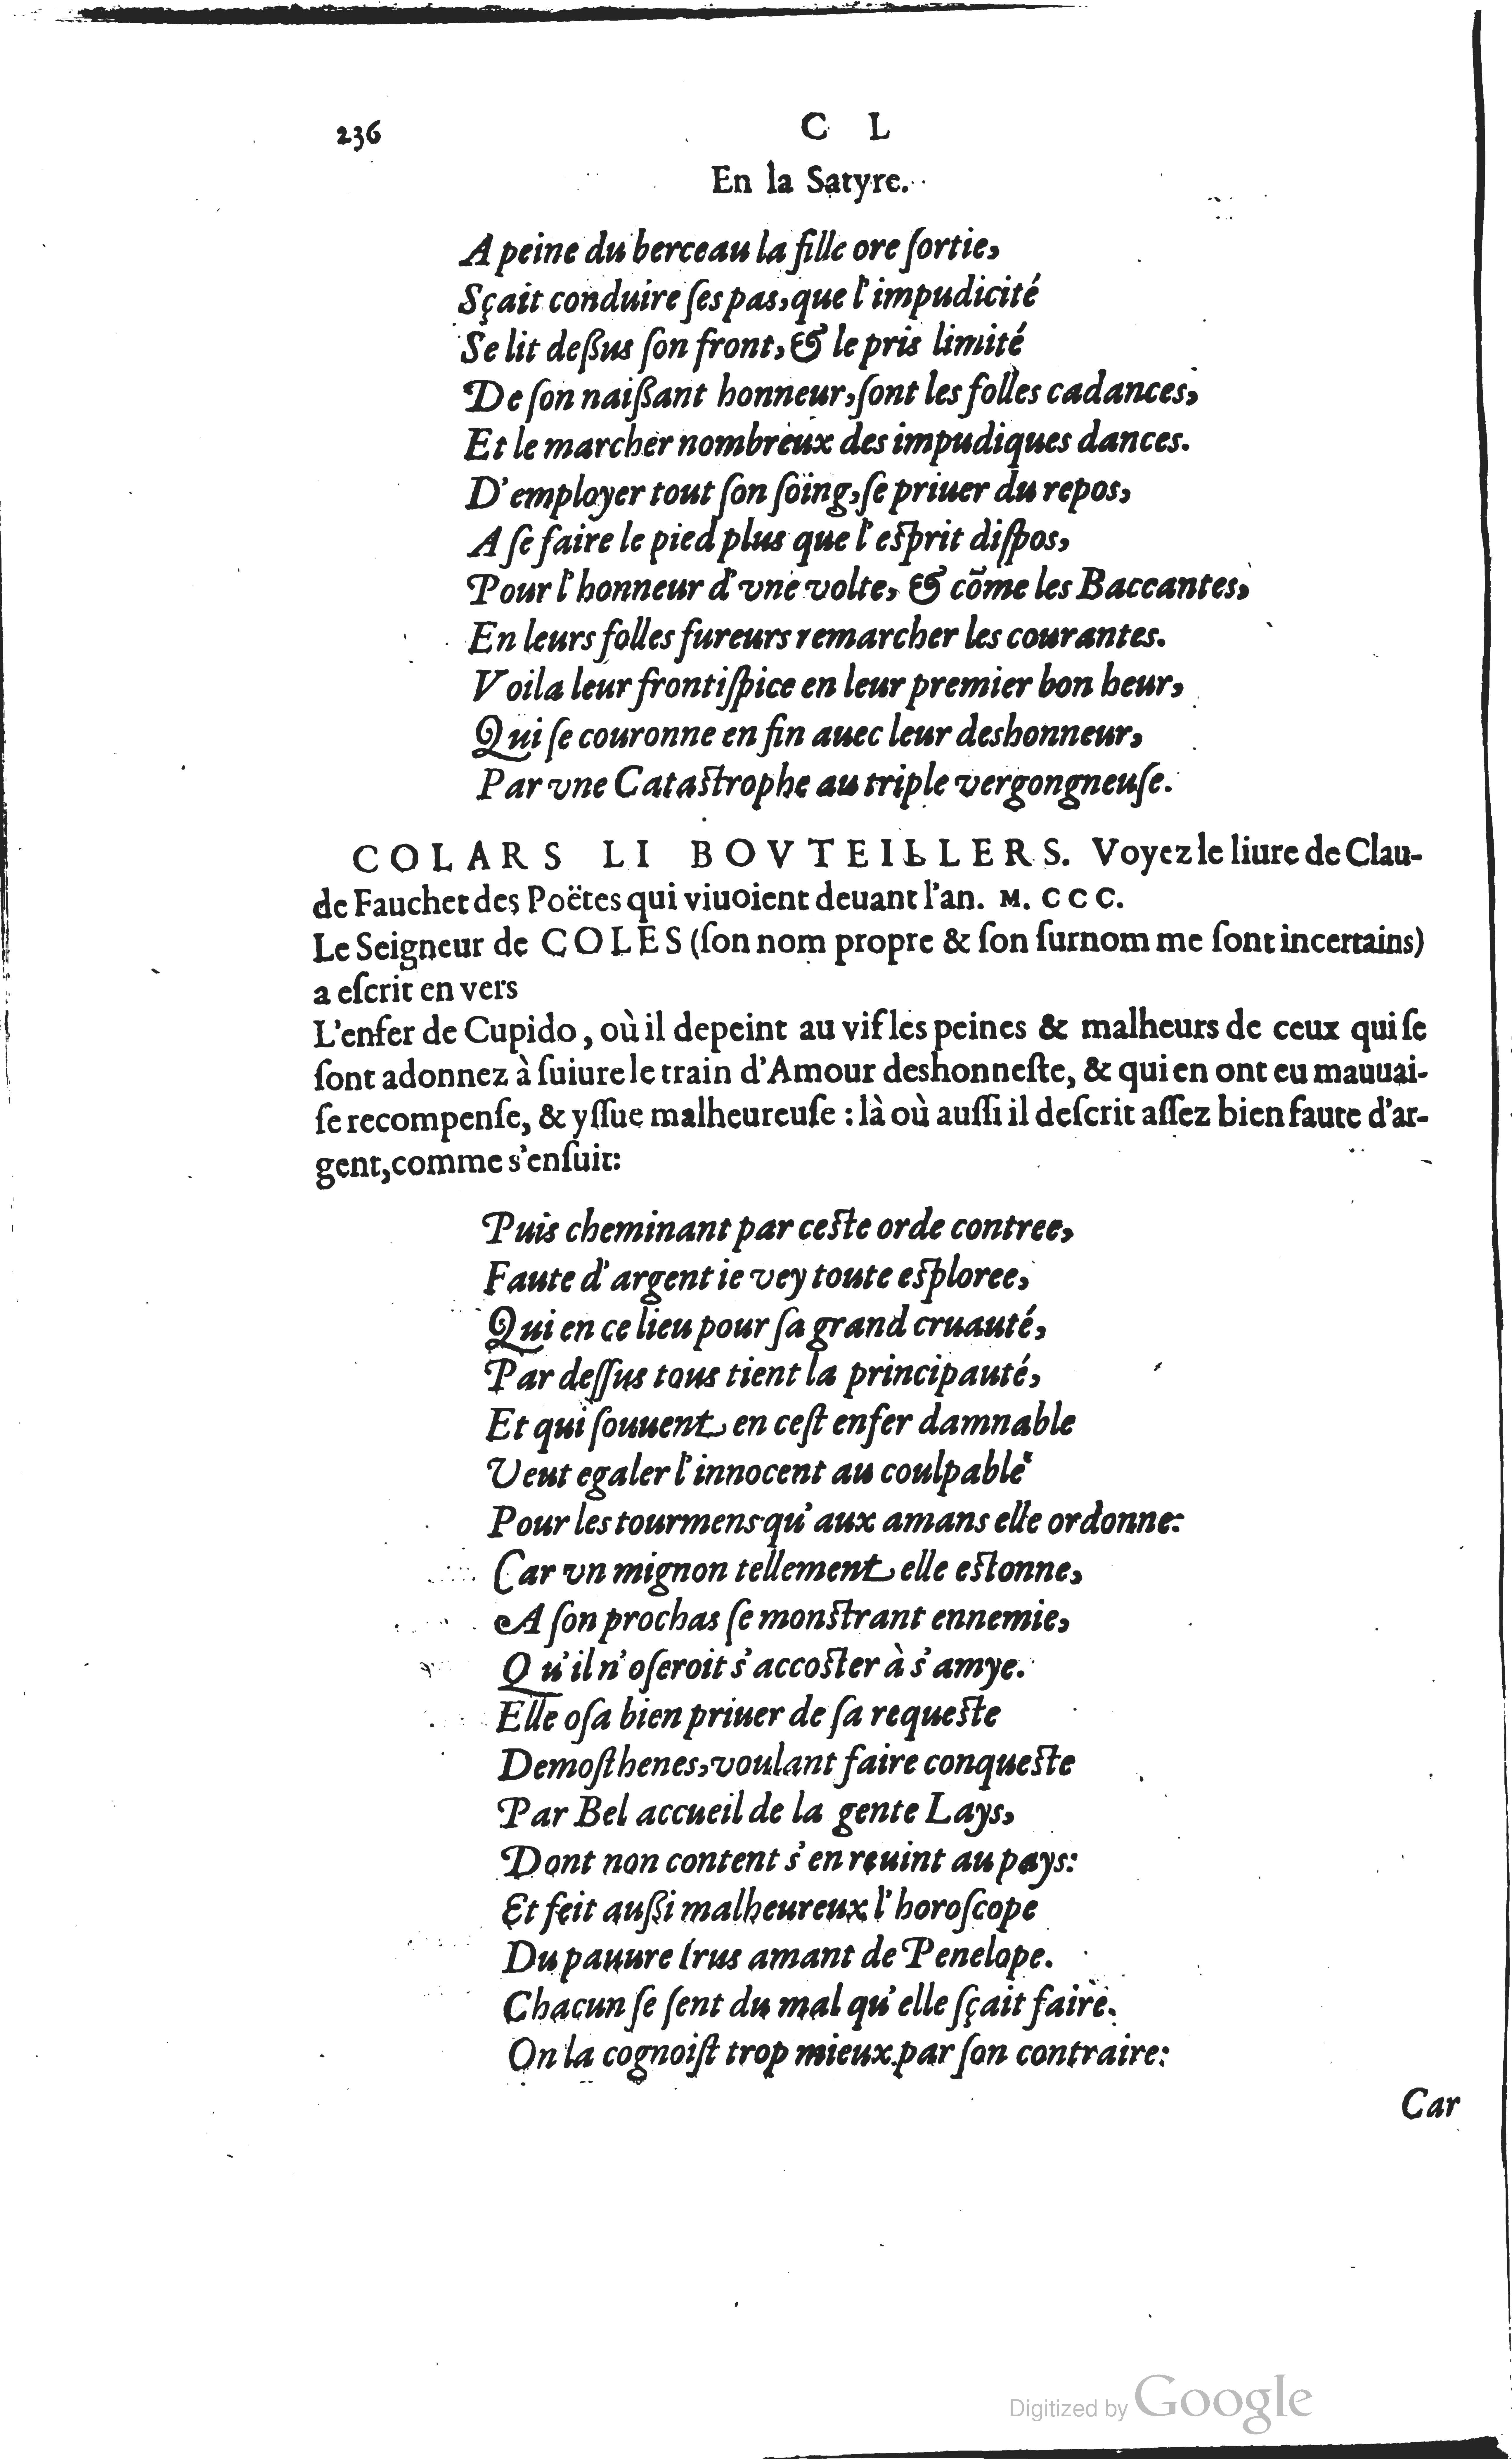 236
C L
En la Satyre.
A peine du berceau la fille ore ſortie,
Sçait conduire ſes pas, que l'impudicité
Se lit deßus ſon front, & le pris limité
De ſon naißant honneur, ſont les folles cadances,
Et le marcher nombreux des impudiques dances.
D'employer tout ſon ſoing, ſe priuer du repos,
A ſe faire le pied plus que l'eſprit diſpos,
Pour l'honneur d'vne volte, & cõme les Baccantes,
En leurs folles fureurs remarcher les courantes.
Voila leur frontiſpice en leur premier bon heur,
Qui ſe couronne en fin auec leur deshonneur,
Par vne Cataſtrophe au triple vergongneuſe.
COLARS LI BOVTEILLERS. Voyez le liure de Clau-
de Fauchet des Poëtes qui viuoient deuant l'an. M. CCC.
Le Seigneur de COLES (ſon nom propre & ſon ſurnom me ſont incertains)
a eſcrit en vers
L'enfer de Cupido, où il depeint au vif les peines & malheurs de ceux qui ſe
ſont adonnez à ſuiure le train d'Amour deshonneſte, & qui en ont eu mauuai-
ſe recompenſe, & yſſue malheureuſe : là où auſſi il deſcrit aſſez bien faute d'ar-
gent, comme s'enſuit:
Puis cheminant par ceſte orde contree,
Faute d'argent ie vey toute eſploree,
Qui en ce lieu pour ſa grand cruauté,
Par deſſus tous tient la principauté,
Et qui ſouuent en ceſt enfer damnable
Veut egaler l'innocent au coulpable
Pour les tourmens qu'aux amans elle ordonne:
Car vn mignon tellement elle eſtonne,
A ſon prochas ſe monſtrant ennemie,
Qu'il n'oſeroit s'accoſter à s'amye.
Elle oſa bien priuer de ſa requeſte
Demoſthenes, voulant faire conqueſte
Par Bel accueil de la gente Lays,
Dont non content s'en reuint au pays:
Et feit außi malheureux l'horoſcope
Du pauure Irus amant de Penelope.
Chacun ſe ſent du mal qu'elle ſçait faire.
On la cognoiſt trop mieux par ſon contraire:
Car
Digitized by Google